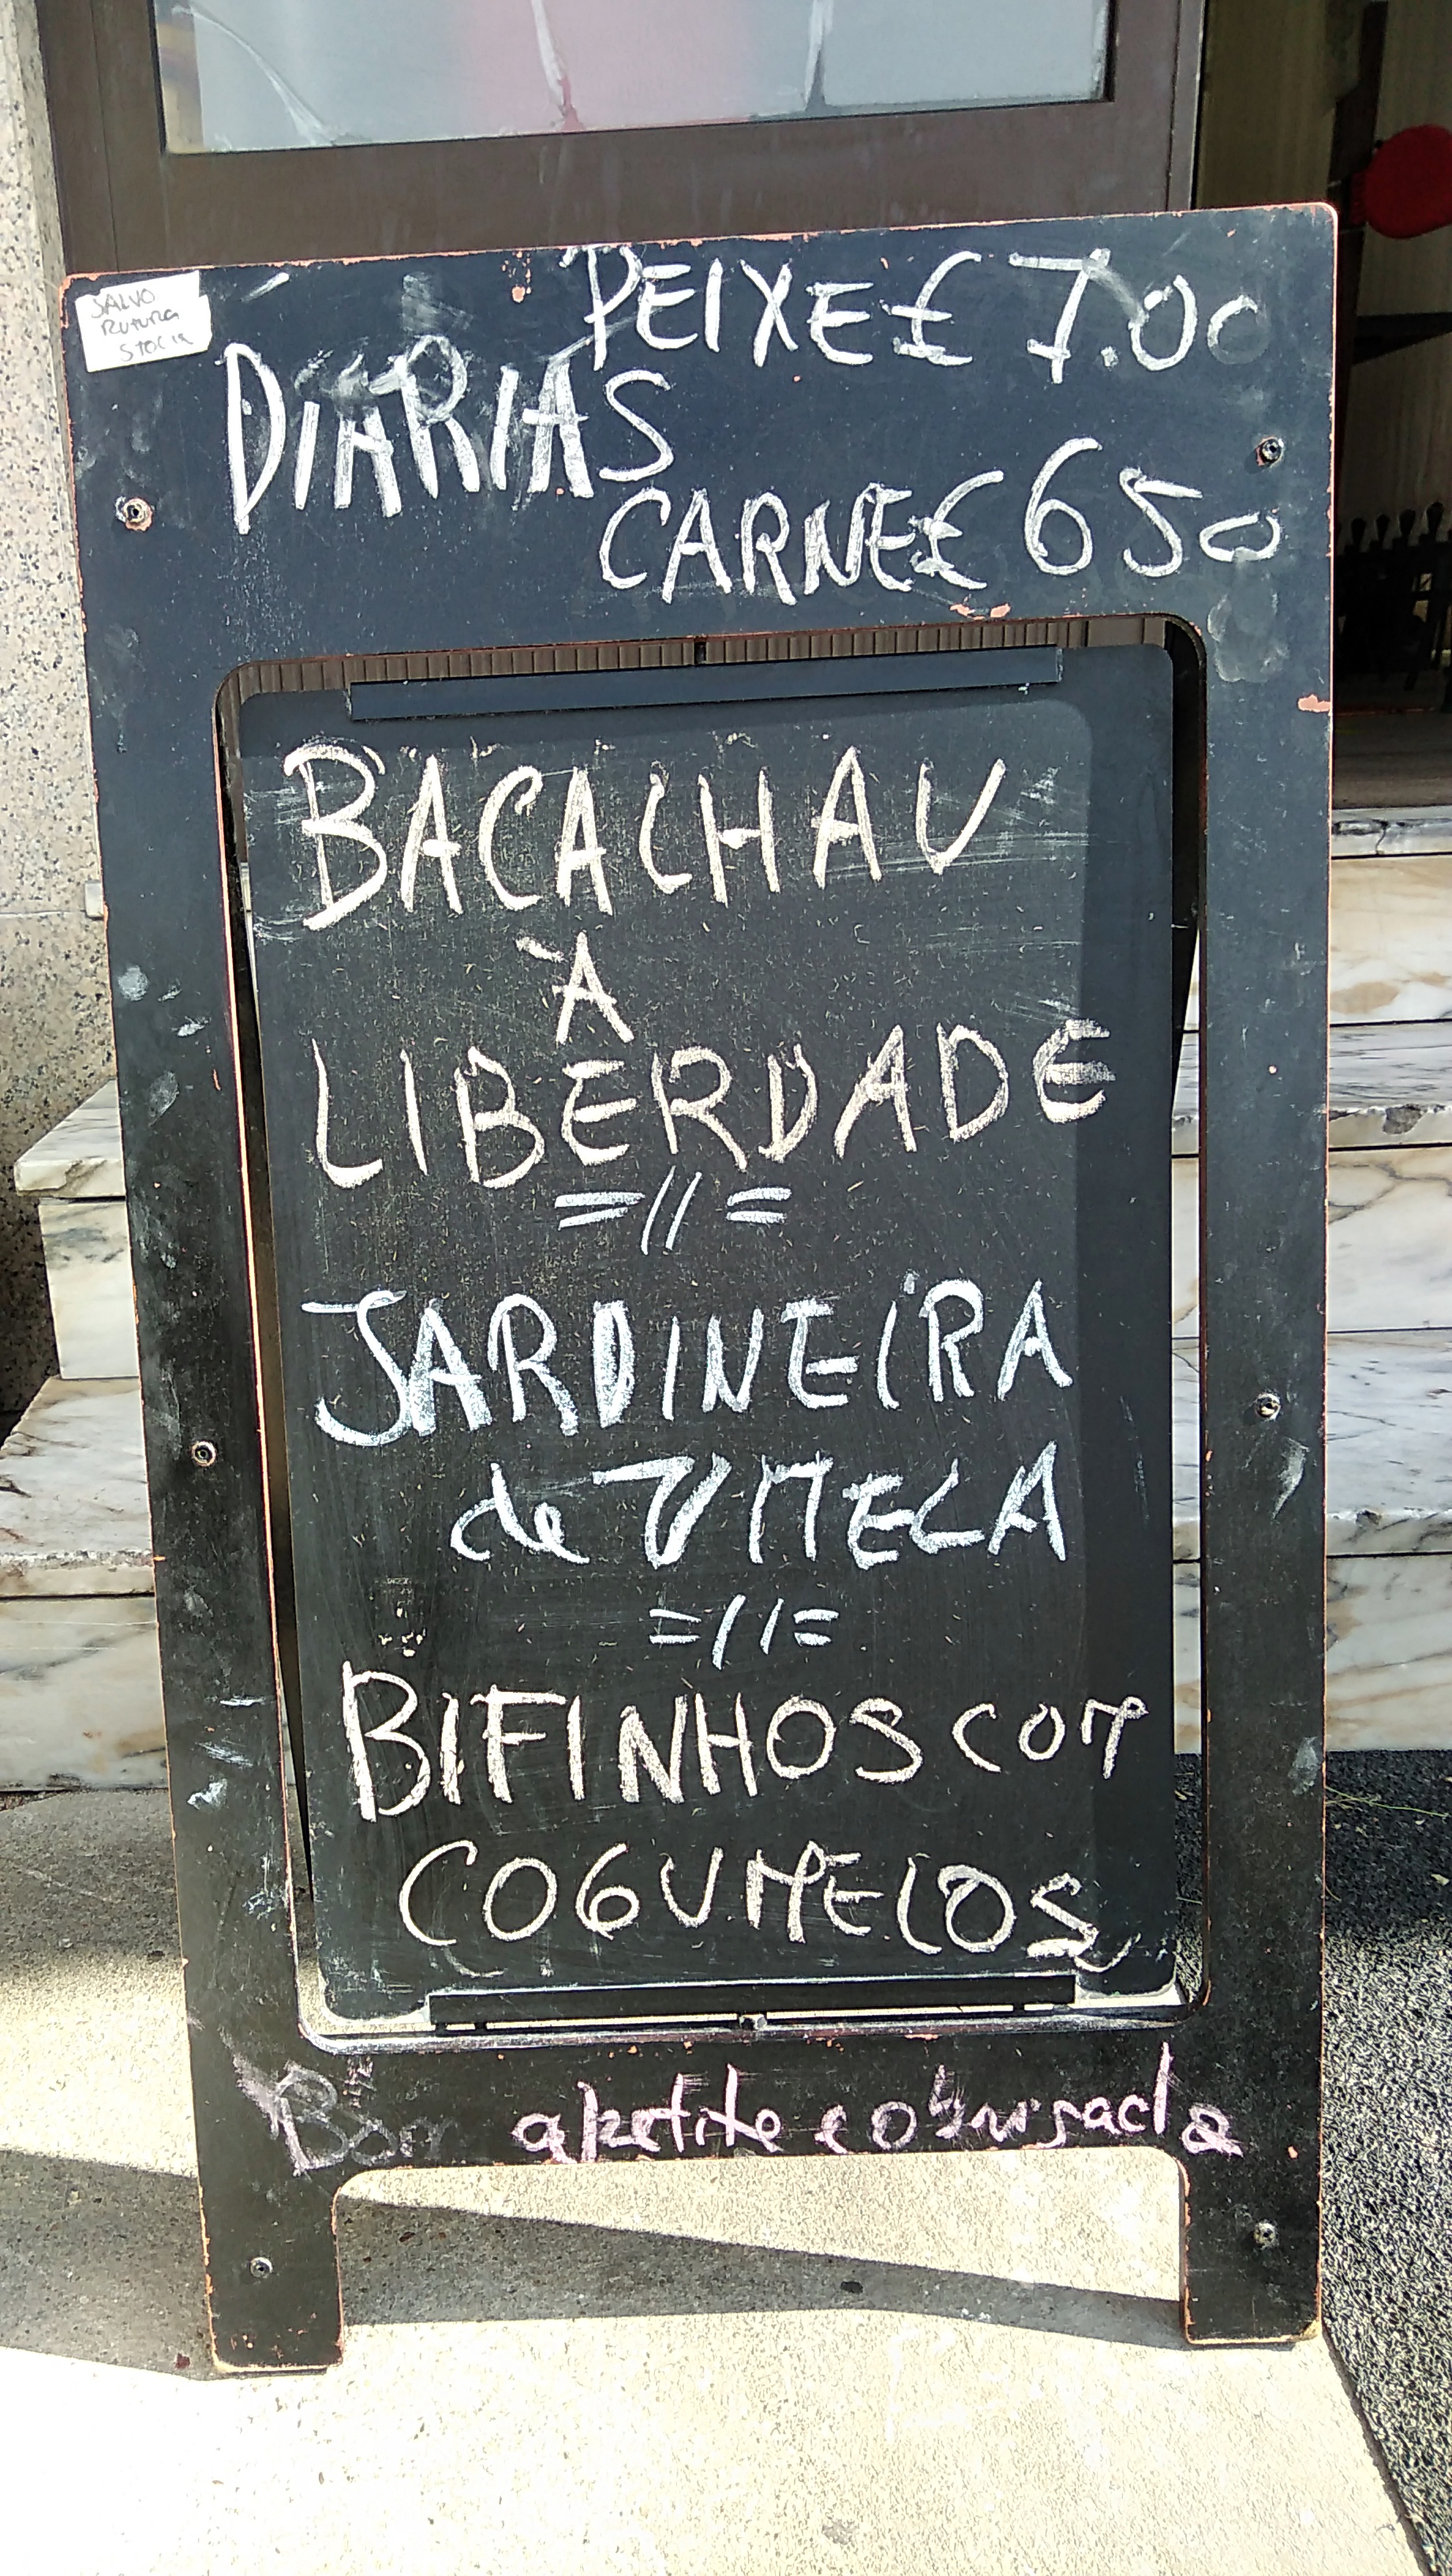 SALVO
RUTURA
STOCK
PEIXE € 7.00
DIÁRIAS
CARNE € 6 50
BACALHAU
À
LIBERDADE
=//=
JARDINEIRA
de VITELA
=//=
BIFINHOS com
COGUMELOS
Bom apetite e obrigada